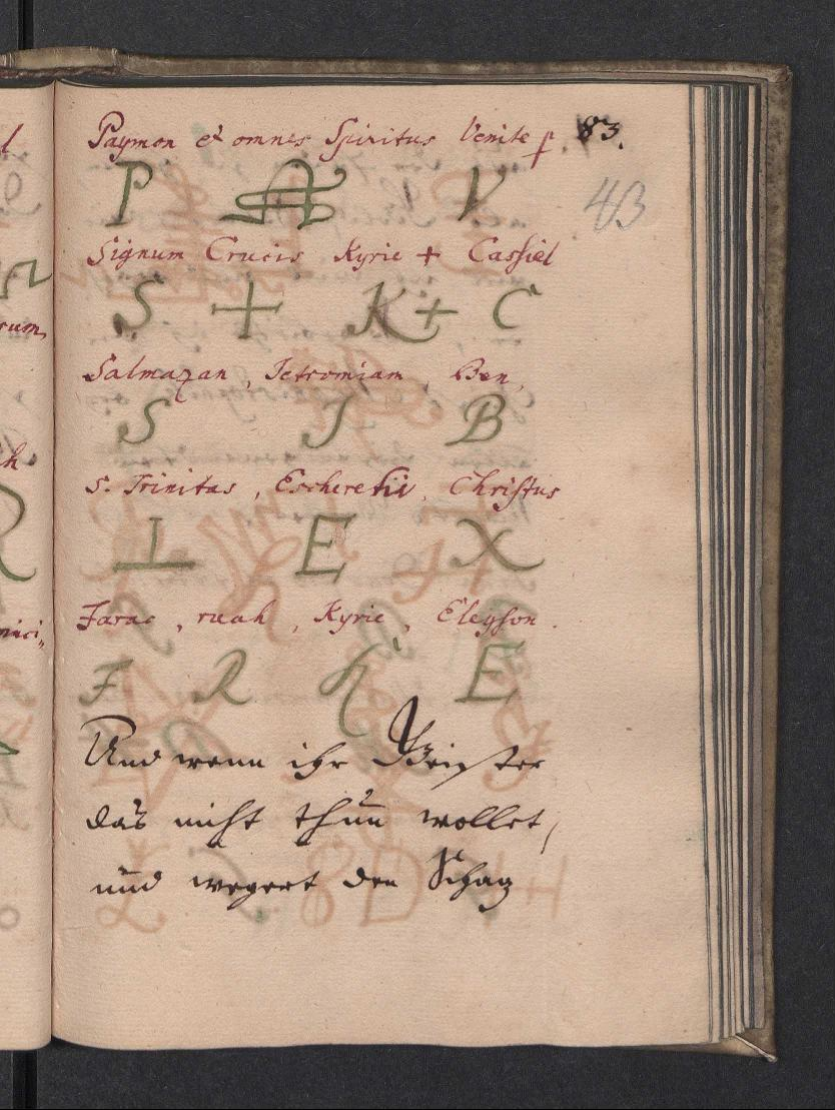 Paymon et omnes Spiritus Venite p. 83.
43
P A V
Signum Crucis Kyrie + Cassiel
S + K + C
Salmazan, Jetromiam, Ben,
S J B
S. Trinitas, Escheretii, Christus
T E X
Farac, ruah, Kyrie, Eleyson.
F R K E
Und wenn ihr Geister
das nicht thun wollet,
und wegert den Schaz